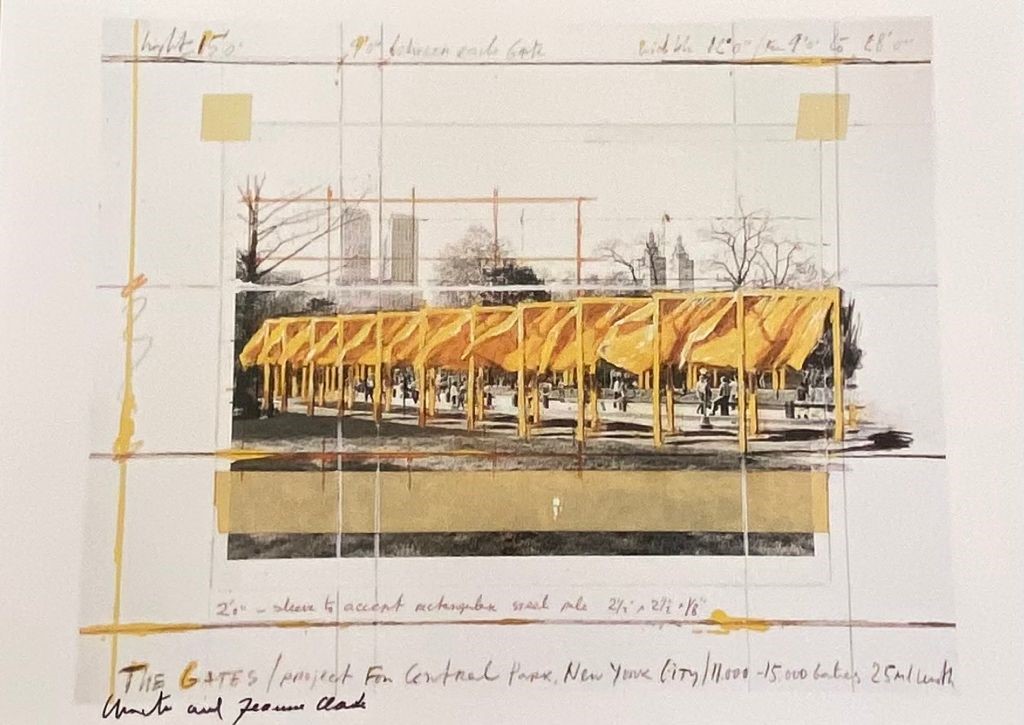 hight 15'0" 9'0" between each Gate width 12'0" / 9'0" to 28'0"
2'0" - sleeve to accent rectangular steel pole 2½" x 2½" x ⅛"
THE GATES / PROJECT FOR Central Park, New York City / 11.000 - 15.000 Gates, 25 ml
Christo and Jeanne Claude